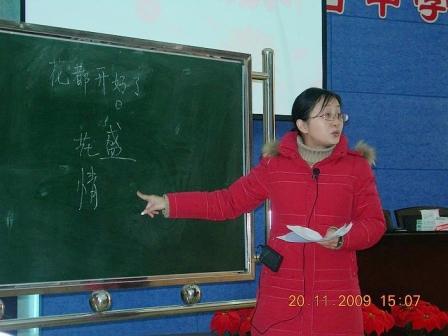 中学
花都开好了
花盛
情
20.11.2009 15:07